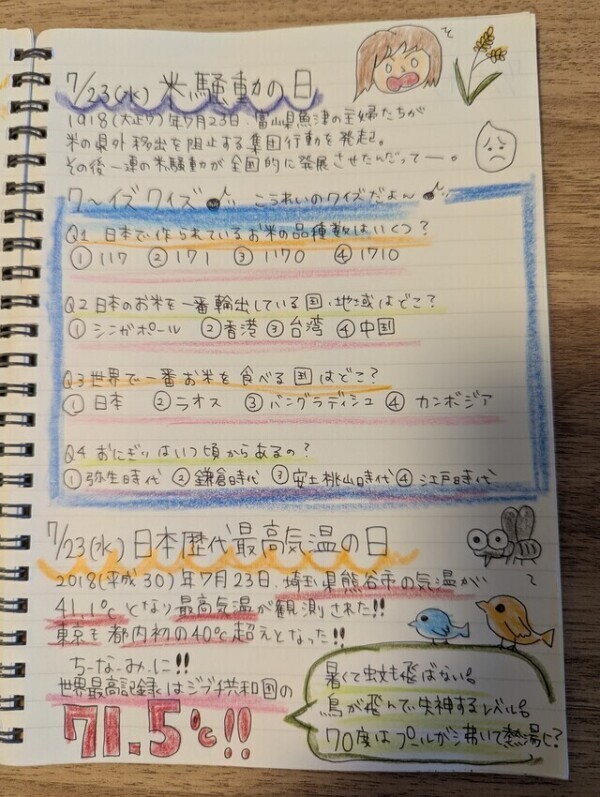 7/23(水) 米騒動の日
1918(大正7)年7月23日、富山県魚津の主婦たちが
米の県外移出を阻止する集団行動を発起。
その後一連の米騒動が全国的に発展させたんだってー。
ク〜イズクイズ こうれいのクイズだよん
Q1 日本で作られているお米の品種数はいくつ?
① 117 ② 171 ③ 1170 ④ 1710
Q2 日本のお米を一番輸出している国・地域はどこ?
① シンガポール ② 香港 ③ 台湾 ④ 中国
Q3 世界で一番お米を食べる国はどこ?
① 日本 ② ラオス ③ バングラディシュ ④ カンボジア
Q4 おにぎりはいつ頃からあるの?
① 弥生時代 ② 鎌倉時代 ③ 安土桃山時代 ④ 江戸時代
7/23(水) 日本歴代最高気温の日
2018(平成30)年7月23日、埼玉県熊谷市の気温が
41.1℃となり最高気温が観測された!!
東京も都内初の40℃超えとなった!!
ち-な-み-に!!
世界最高記録はジブチ共和国の
71.5℃!!
暑くて蚊も飛ばない。
鳥が飛んで失神するレベル。
70度はプールが沸いて熱湯に?